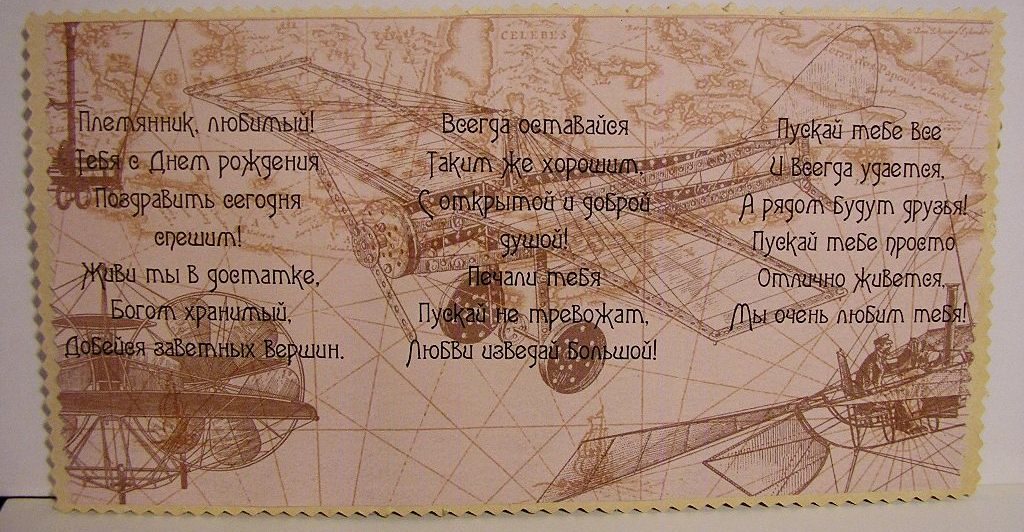 CELEBES
Племянник, любимый!
Тебя с Днем рождения
Поздравить сегодня
спешим!
Живи ты в достатке,
Богом хранимый,
Добейся заветных вершин.
Всегда оставайся
Таким же хорошим,
С открытой и доброй
душой!
Печали тебя
Пускай не тревожат,
Любви изведай большой!
Пускай тебе все
И Всегда удается,
А рядом будут друзья!
Пускай тебе просто
Отлично живется,
Мы очень любим тебя!